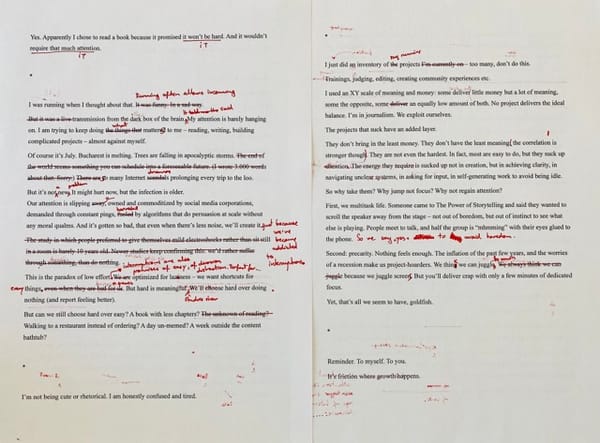 Yes. Apparently I chose to read a book because it promised it won't be hard. And it wouldn't
IT
require that much attention.
IT
*
Running often allows incoming
I was running when I thought about that. It was funny. In a sad way.
It told me the said
But it was a live transmission from the dark box of the brain. My attention is barely hanging
what
on. I am trying to keep doing the things that matter to me – reading, writing, building
complicated projects – almost against myself.
Of course it's July. Bucharest is melting. Trees are falling in apocalyptic storms. The end of
the world seems something you can schedule into a foreseeable future. (I wrote 3.000 words
about that. Sorry) There are so many Internet scandals prolonging every trip to the loo.
problem
But it's not new. It might hurt now, but the infection is older.
Our attention is slipping away, owned and commoditized by social media corporations,
demanded through constant pings, fueled by algorithms that do persuasion at scale without
any moral qualms. And it's gotten so bad, that even when there's less noise, we'll create it just because
we've
The study in which people preferred to give themselves mild electroshocks rather than sit still
become
in a room is barely 10 years old. Newer studies keep confirming this: we'd rather suffer
addicted
through something, than do nothing.
to
interruptions
This is the paradox of low effort. We are optimized for laziness – we want shortcuts for
easy things, even when they are bad for us. But hard is meaningful. We'll choose hard over doing
nothing (and report feeling better).
But can we still choose hard over easy? A book with less chapters? The unknown of reading?
Walking to a restaurant instead of ordering? A day un-memed? A week outside the content
bathtub?
*
I'm not being cute or rhetorical. I am honestly confused and tired.
*
my running
I just did an inventory of the projects I'm currently on – too many, don't do this.
Trainings, judging, editing, creating community experiences etc.
I used an XY scale of meaning and money: some deliver little money but a lot of meaning,
some the opposite, some deliver an equally low amount of both. No project delivers the ideal
balance. I'm in journalism. We exploit ourselves.
The projects that suck have an added layer.
They don't bring in the least money. They don't have the least meaning (the correlation is
stronger though). They are not even the hardest. In fact, most are easy to do, but they suck up
attention. The energy they require is sucked up not in creation, but in achieving clarity, in
navigating unclear systems, in asking for input, in self-generating work to avoid being idle.
So why take them? Why jump not focus? Why not regain attention?
First, we multitask life. Someone came to The Power of Storytelling and said they wanted to
scroll the speaker away from the stage – not out of boredom, but out of instinct to see what
else is playing. People meet to talk, and half the group is "mhmming" with their eyes glued to
the phone. So we say yes to avoid boredom.
Second: precarity. Nothing feels enough. The inflation of the past few years, and the worries
of a recession make us project-hoarders. We think we can juggle. We always think we can
juggle because we juggle screens. But you'll deliver crap with only a few minutes of dedicated
focus.
Yet, that's all we seem to have, goldfish.
*
Reminder. To myself. To you.
It's friction where growth happens.